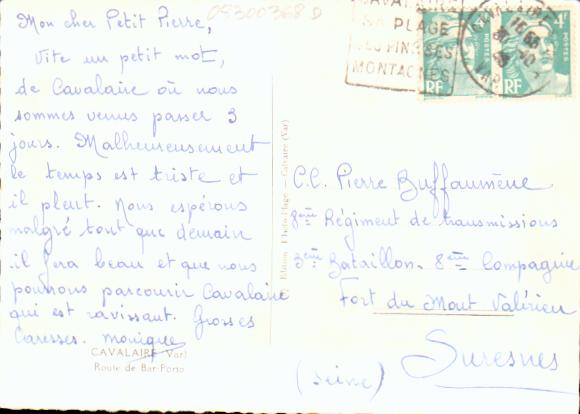 Mon cher Petit Pierre,
Vite un petit mot,
de Cavalaire où nous
sommes venus passer 3
jours. Malheureusement
le temps est triste et
il pleut. Nous espérons
malgré tout que demain
il fera beau et que nous
pourrons parcourir Cavalaire
qui est ravissant. Grosses
Caresses. Monique
CAVALAIRE (Var)
Route de Bar-Porto
05300368 D
Edition
SA PLAGE
SES PINS SES
MONTAGNES
CAVALAIRE
VAR
POSTES
4F
RF
RF
C.C. Pierre Buffaumène
8ème Régiment de transmissions
3ème Bataillon. 8ème Compagnie
Fort du Mont Valérien
Suresnes
(Seine)